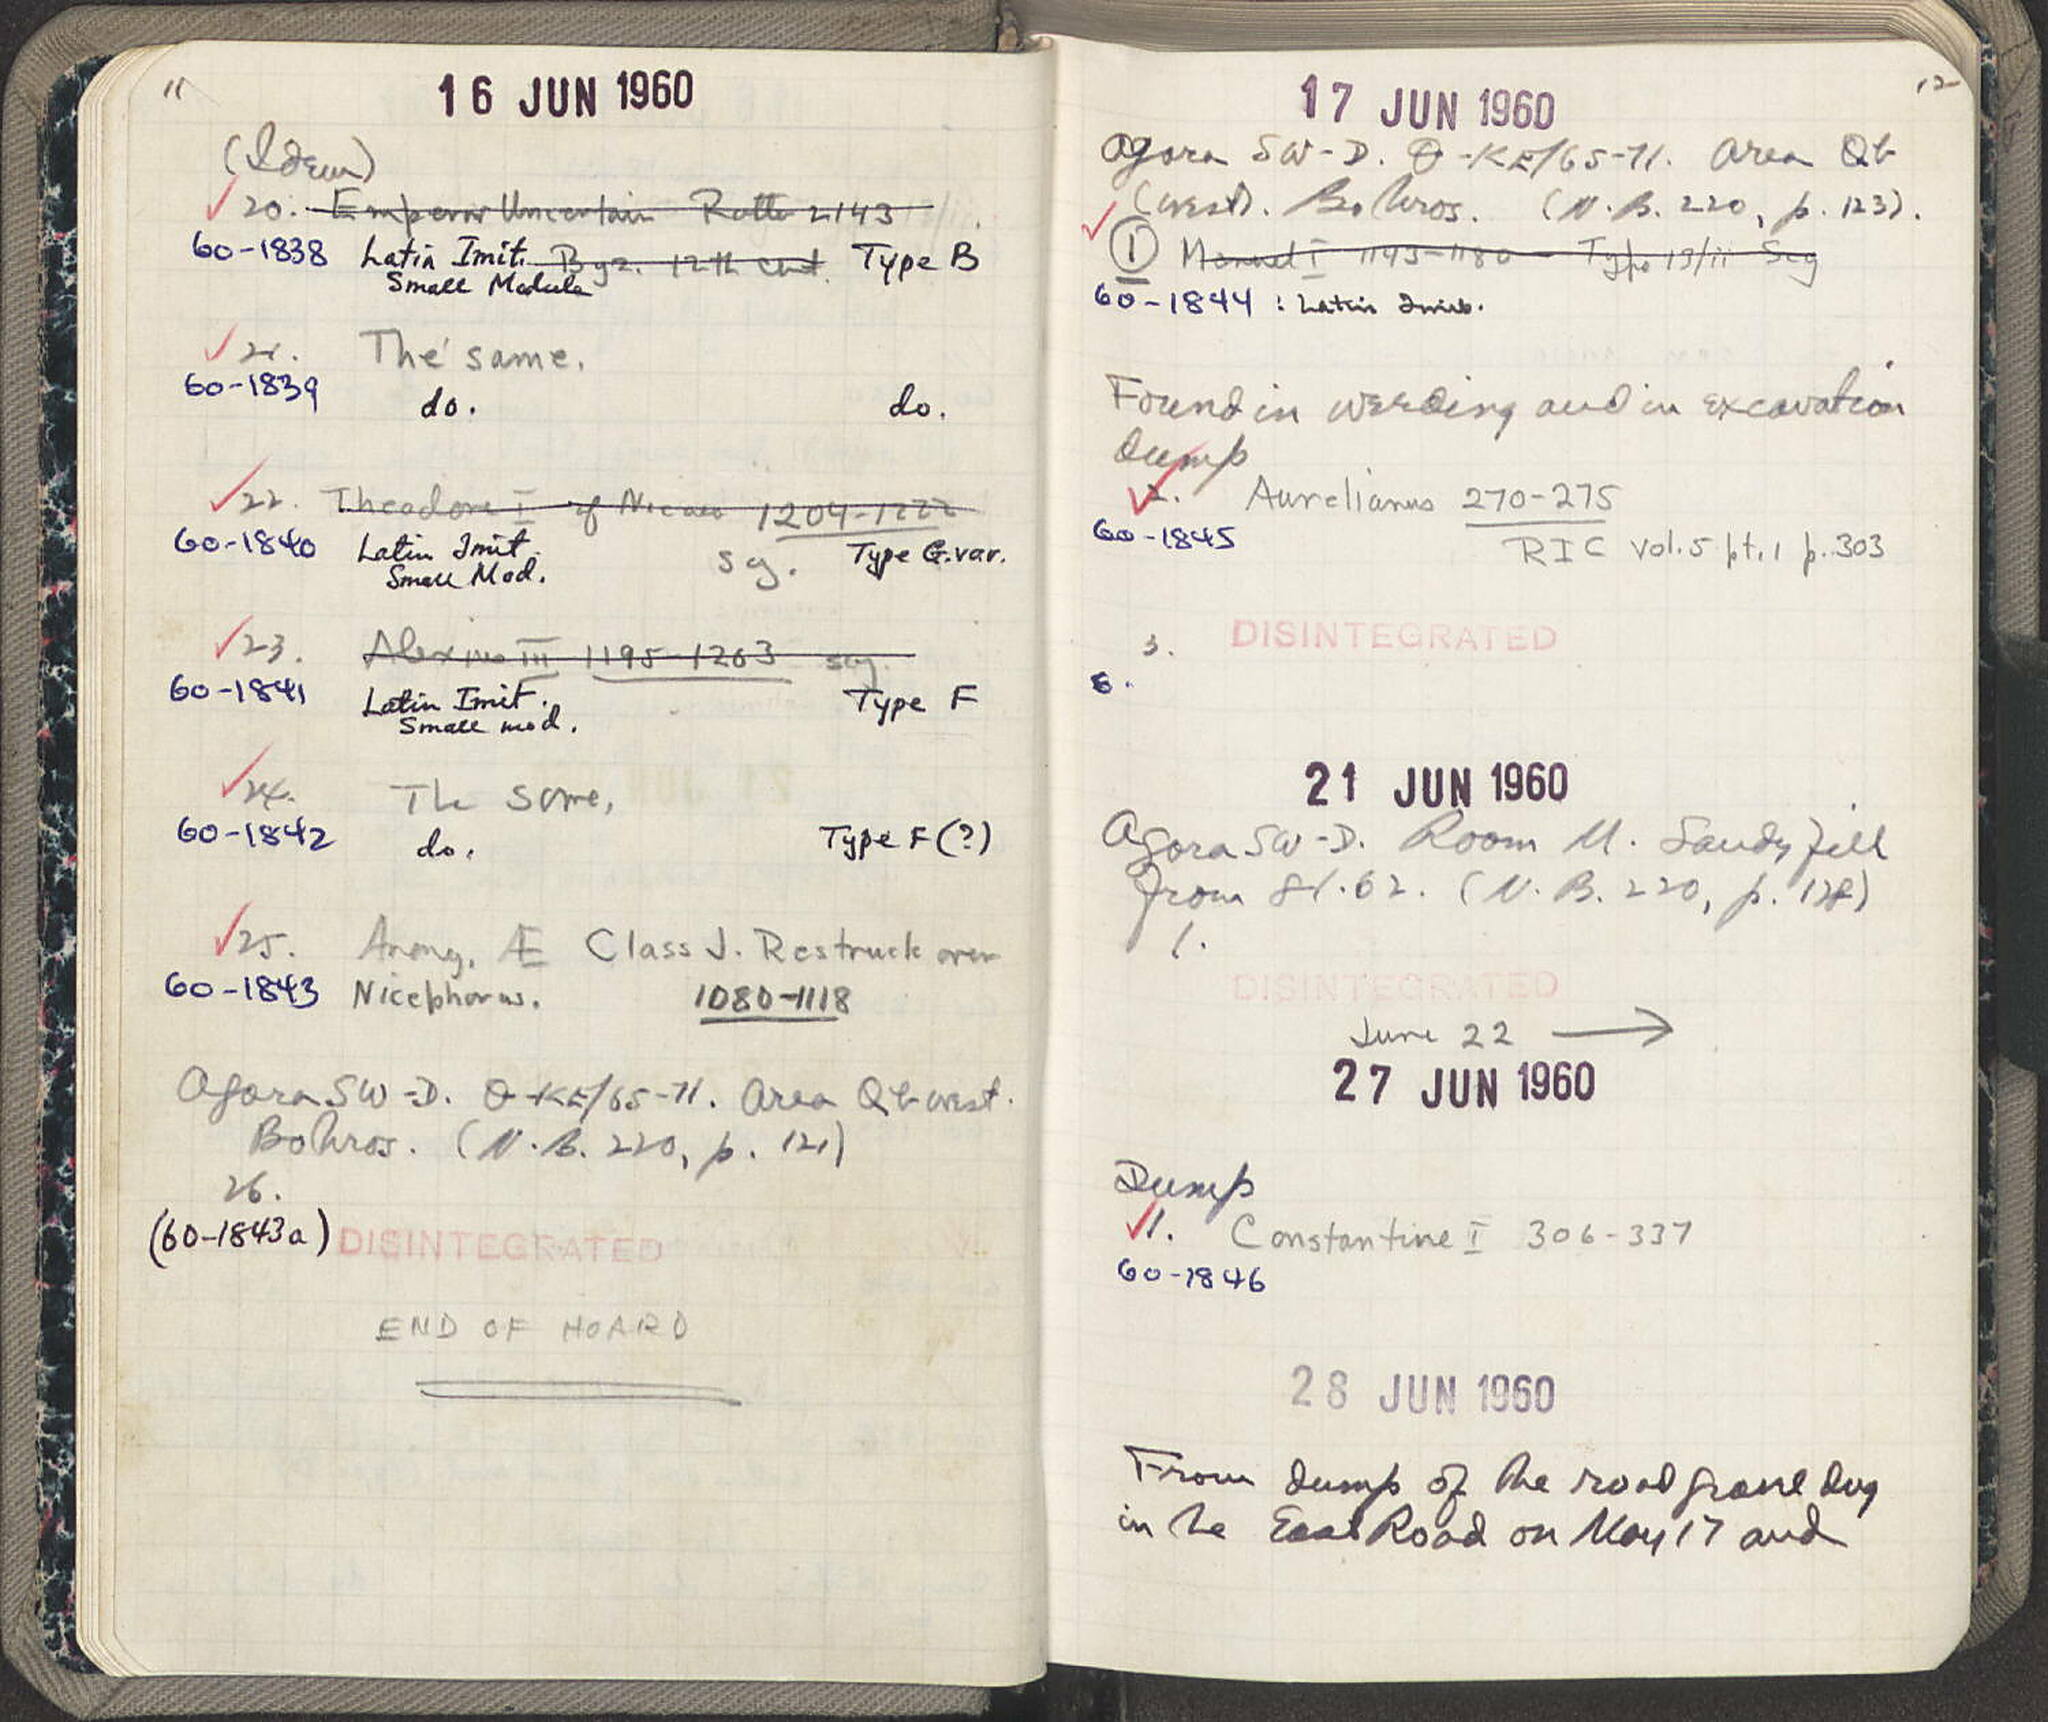 11
16 JUN 1960
(Idem)
20. Emperor Uncertain Ratto 2143
60-1838 Latin Imit. Byz. 12th cent. Type B
Small Module
21. The same.
60-1839 do. do.
22. Theodore I of Nicaea 1204-1222
60-1840 Latin Imit. Scy. Type G.var.
Small Mod.
23. Alexius III 1195-1203 scy.
60-1841 Latin Imit. Type F
Small mod.
24. The same,
60-1842 do. Type F (?)
25. Anony. Æ Class J. Restruck over
60-1843 Nicephorus. 1080-1118
Agora SW-D. Θ-KE/65-71. Area Qb west.
Bothros. (N.B. 220, p. 121)
26.
(60-1843a) DISINTEGRATED
END OF HOARD
12
17 JUN 1960
Agora SW-D. Θ-KE/65-71. Area Qb
(west). Bothros. (N.B. 220, p. 123).
1 Manuel I 1143-1180 - Type 19/ii Scy
60-1844 : Latin Imit.
Found in weeding and in excavation
dump
2. Aurelianus 270-275
60-1845 RIC vol.5 pt.1 p.303
3. DISINTEGRATED
6.
21 JUN 1960
Agora SW-D. Room M. Sandy fill
from 81.62. (N.B. 220, p. 128)
1.
DISINTEGRATED
June 22 →
27 JUN 1960
Dump
1. Constantine I 306-337
60-1846
28 JUN 1960
From dump of the road gravel dug
in the East Road on May 17 and